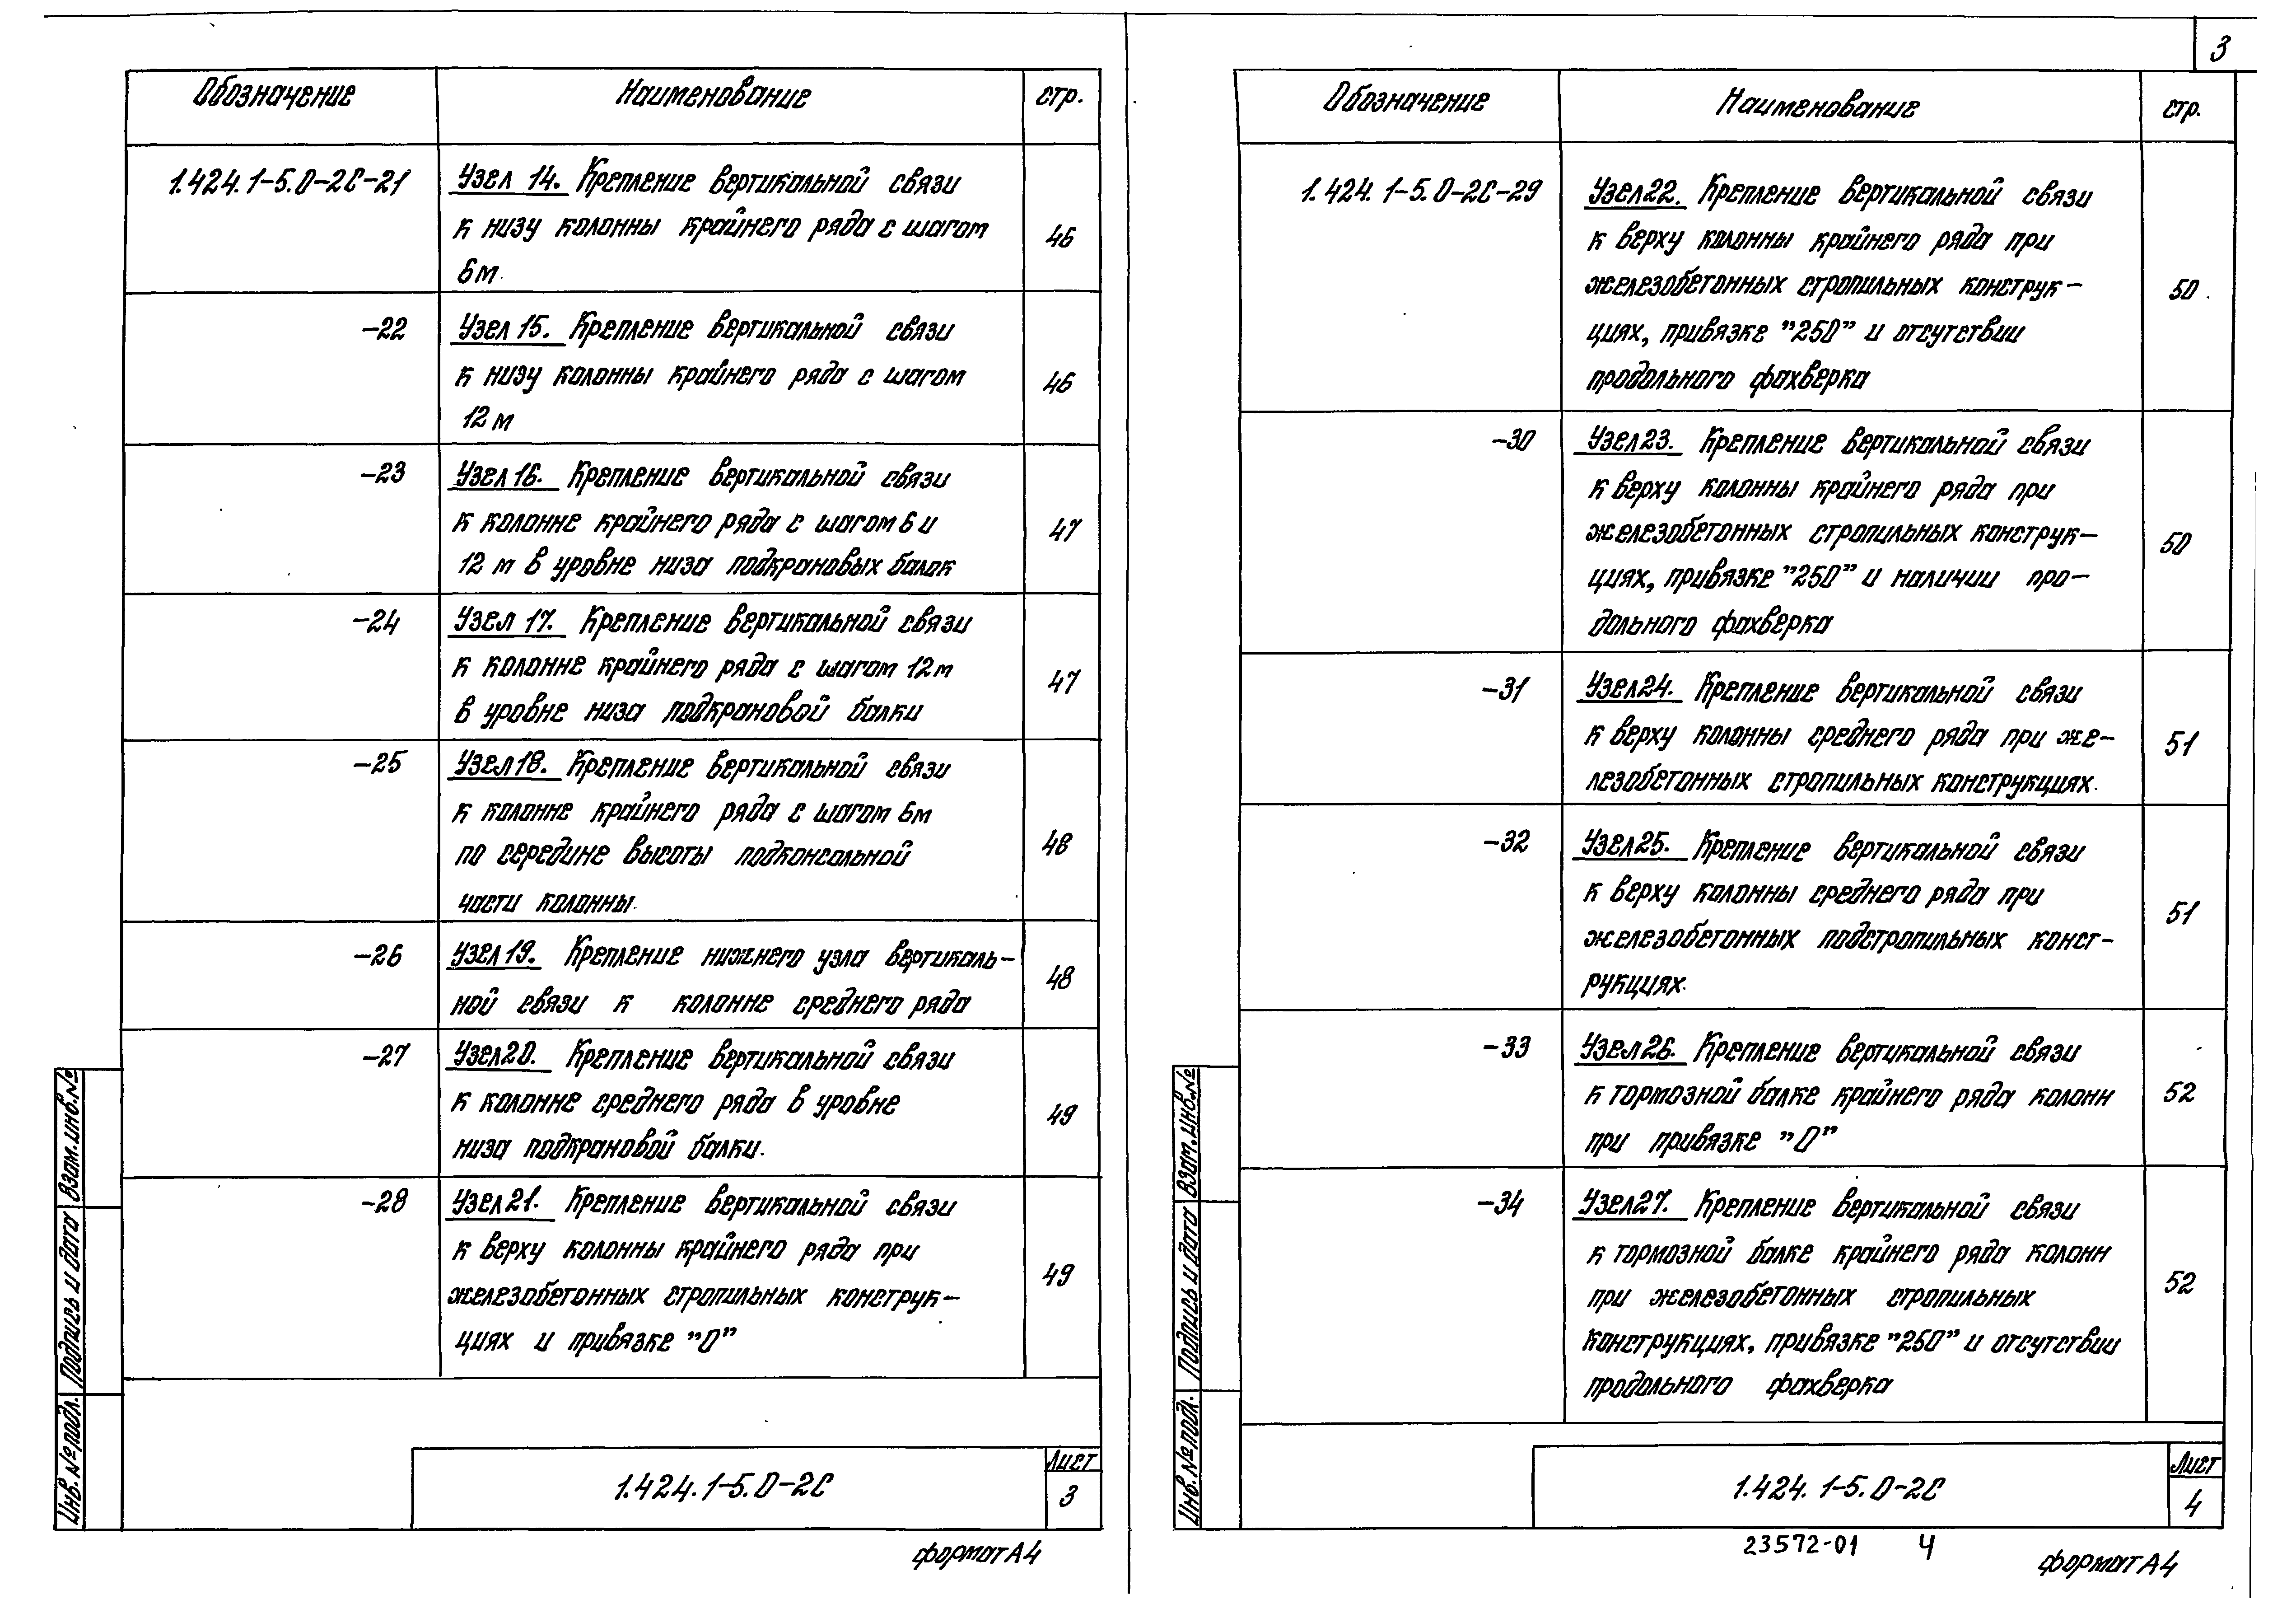 3
Обозначение Наименование стр.
1.424.1-5.0-2С-21 Узел 14. Крепление вертикальной связи
к низу колонны крайнего ряда с шагом
6м. 46
-22 Узел 15. Крепление вертикальной связи
к низу колонны крайнего ряда с шагом
12 м 46
-23 Узел 16. Крепление вертикальной связи
к колонне крайнего ряда с шагом 6 и
12 м в уровне низа подкрановых балок 47
-24 Узел 17. Крепление вертикальной связи
к колонне крайнего ряда с шагом 12м
в уровне низа подкрановой балки 47
-25 Узел 18. Крепление вертикальной связи
к колонне крайнего ряда с шагом 6м
по середине высоты подконсольной
части колонны. 48
-26 Узел 19. Крепление нижнего узла вертикаль-
ной связи к колонне среднего ряда 48
-27 Узел 20. Крепление вертикальной связи
к колонне среднего ряда в уровне
низа подкрановой балки. 49
-28 Узел 21. Крепление вертикальной связи
к верху колонны крайнего ряда при
железобетонных стропильных конструк-
циях и привязке "0" 49
Инв. № подл. Подпись и дата Взам. инв. №
1.424.1-5.0-2С
Лист
3
формат А4
Обозначение Наименование стр.
1.424.1-5.0-2С-29 Узел 22. Крепление вертикальной связи
к верху колонны крайнего ряда при
железобетонных стропильных конструк-
циях, привязке "250" и отсутствии
продольного фахверка 50
-30 Узел 23. Крепление вертикальной связи
к верху колонны крайнего ряда при
железобетонных стропильных конструк-
циях, привязке "250" и наличии про-
дольного фахверка 50
-31 Узел 24. Крепление вертикальной связи
к верху колонны среднего ряда при же-
лезобетонных стропильных конструкциях. 51
-32 Узел 25. Крепление вертикальной связи
к верху колонны среднего ряда при
железобетонных подстропильных конст-
рукциях. 51
-33 Узел 26. Крепление вертикальной связи
к тормозной балке крайнего ряда колонн
при привязке "0" 52
-34 Узел 27. Крепление вертикальной связи
к тормозной балке крайнего ряда колонн
при железобетонных стропильных
конструкциях, привязке "250" и отсутствии
продольного фахверка 52
Инв. № подл. Подпись и дата Взам. инв. №
1.424.1-5.0-2С
Лист
4
23572-01 4
формат А4